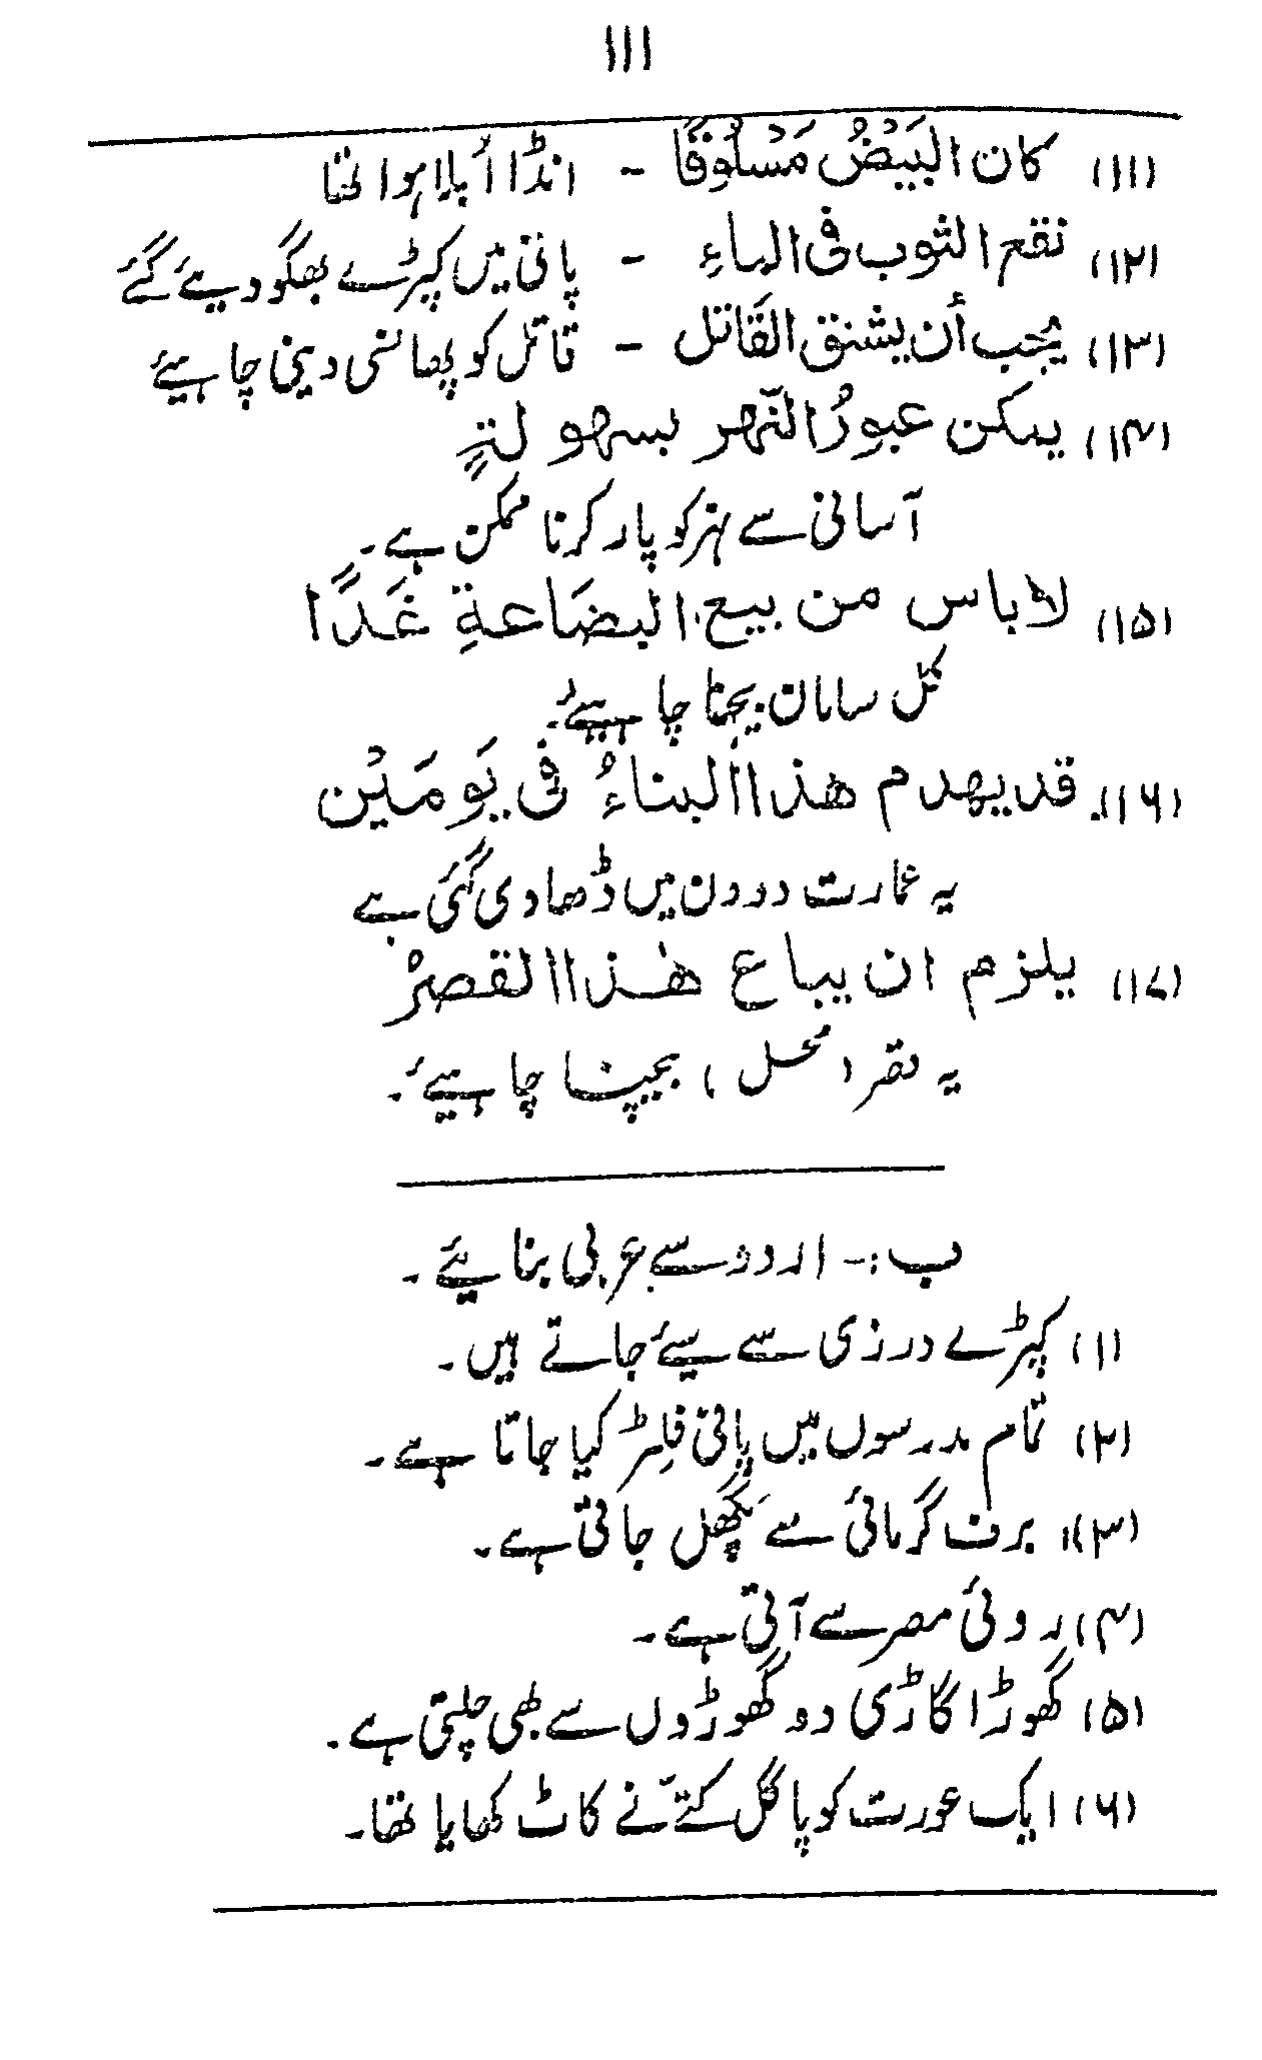 ۱۱۱
(۱۱) كان البَيْضُ مَسْلُوقًا - انڈا اُبلا ہوا تھا
(۱۲) نقع الثوب فى الماءِ - پانی میں کپڑے بھگو دیئے گئے
(۱۳) يُجب أن يشنق القَاتل - قاتل کو پھانسی دینی چاہیئے
(۱۴) يمكن عبورُ النّهر بسهولةٍ
آسانی سے نہر کو پار کرنا ممکن ہے۔
(۱۵) لا باس من بيع البضَاعةِ غَدًا
کل سامان بیچنا چاہیئے۔
(۱۶) قد يهدم هذا البناءُ فى يَومَيْن
یہ عمارت دو دن میں ڈھا دی گئی ہے
(۱۷) يلزم ان يباع هٰذا القصرْ
یہ قصر (محل) بیچنا چاہیئے۔
ب :- اردو سے عربی بنایئے۔
(۱) کپڑے درزی سے سیئے جاتے ہیں۔
(۲) تمام مدرسوں میں پانی فلِٹر کیا جاتا ہے۔
(۳) برف گرمائی سے پگھل جاتی ہے۔
(۴) روئی مصر سے آتی ہے۔
(۵) گھوڑا گاڑی دو گھوڑوں سے بھی چلتی ہے۔
(۶) ایک عورت کو پاگل کتّے نے کاٹ کھایا تھا۔